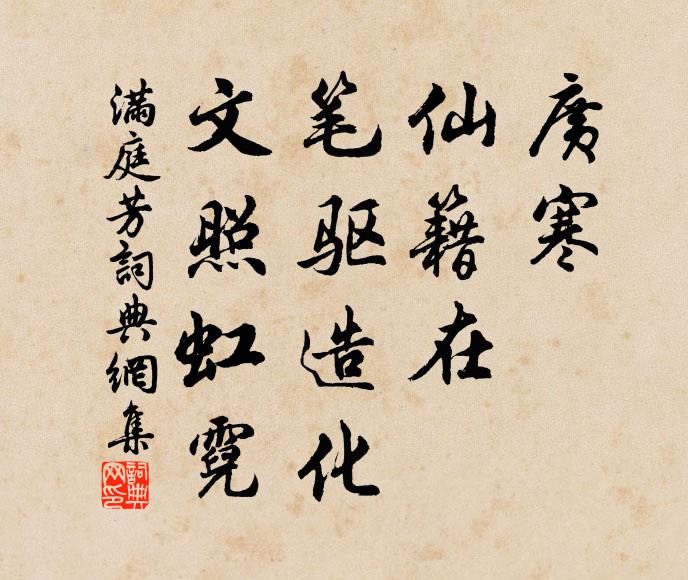 廣寒
仙籍在
笔驱造化
文照虹霓
滿庭芳詞典網集
詞典网印